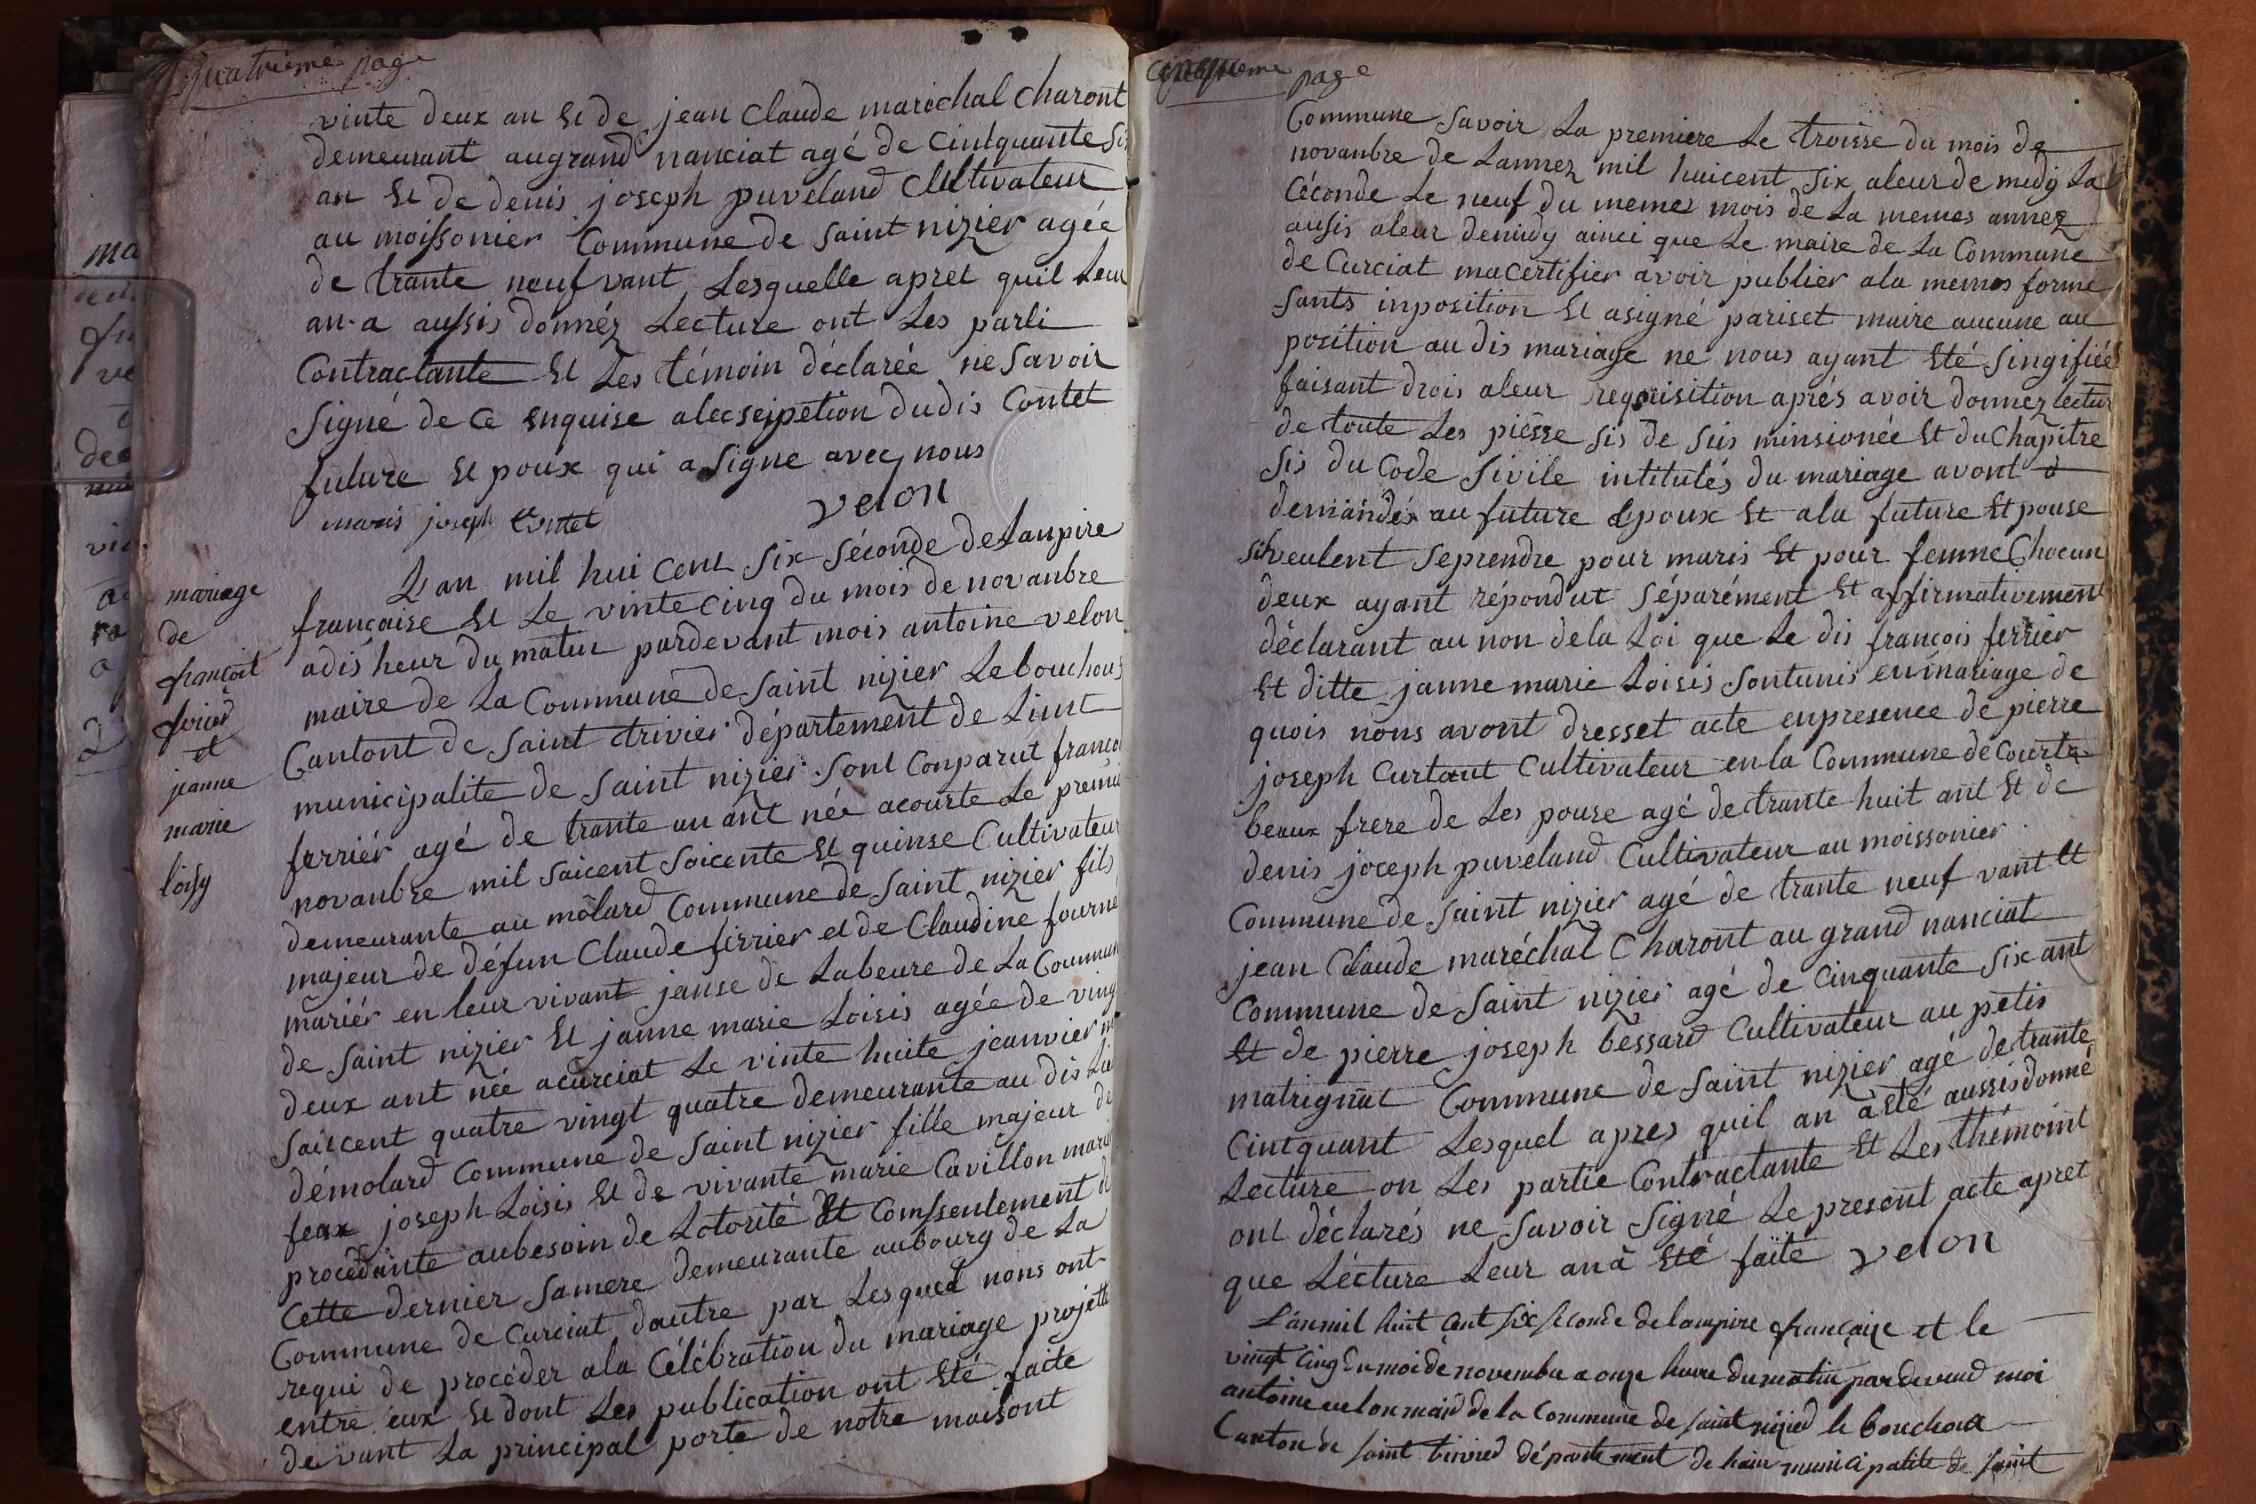 quatrieme page
vinte deux an Et de jean Claude maréchal Charont
demeurant augrand nanciat agé de Cintquante Si
an Et de denis joseph puveland Cultivateur
au moissonier Commune de Saint nizier agée
de trante neuf vant Lesquelle apret quil Leur
an a aussis donnéz Lecture ont Les parti
Contractante Et Les témoin déclarée ne Savoir
Signé de Ce enquise alecseipetion dudis Contet
future Et poux qui a Signe avec nous
maris joseph Contet velon
mariage
de
françoit
feried
et
jeanne
marie
loisy
Lan mil hui Cent Six Séconde de Lanpire
francaise Et Le vinte Cinq du mois de novanbre
adis heur du matin pardevant mois antoine velon
maire de La Commune de Saint nizier Le bouchous
Cantont de Saint trivier département de Liint
municipalite de Saint nizier Sont Conparut francoi
ferriér agé de trante un ant née acourte Le premie
novanbre mil Saicent Soicente Et quinse Cultivateur
demeurante au môlard Commune de Saint nizier fils
majeur de défun Claude firrier et de Claudine fourne
mariér en leur vivant janse de Labeure de La Commun
de Saint nizier Et janne marie Loisis agée de ving
deux ant née acurciat Le vinte huite jeanvier m
Saiscent quatre vingt quatre demeurante au dis Lie
démolard Commune de Saint nizier fille majeur de
feax joseph Loisis Et de vivante marie Cavillon marie
procedante aubesoin de Lotorité Et Comssentement de
Cette dernier Samere demeurante aubourg de La
Commune de Curciat dautre par Lesquel nous ont
requi de procéder ala Célébration du mariage projette
entre eux Et dont Les publication ont Eté faite
devant La principal porte de notre maisont
cinquieme page
Commune Savoir La premiere Le troisse du mois de
novanbre de Lannez mil huicent Six aleur de midy La
Céconde Le neuf du memes mois de La memes annez
ausis aleur demidy ainci que Le maire de La Commune
de Curciat macertifier avoir publier ala memes forme
Sants inposition Et asigné pariset maire aucune au
position au dis mariage ne nous ayant Eté Singifiée
faisant drois aleur requisition aprés avoir donnez lectur
de toute Les piésse Sis de Sus minsionée Et du Chapitre
Sis du Code Sivile intitulés du mariage avont d
demandés au future Epoux Et ala future Et pouse
Silveulent Seprendre pour maris Et pour femme Chocun
deux ayant répondut Séparément Et affirmativement
déclarant au non dela Loi que Le dis francois ferrier
Et ditte janne marie Loisis Sontunis en mariage de
quois nous avont dresset acte enpresence de pierre
joseph Curtaut Cultivateur en la Commune de Courte
beaux frere de Les pouse agé de trante huit ant Et de
denis joceph puveland Cultivateur au moissonier
Commune de Saint nizier agé de trante neuf vant Et
jean Claude maréchal Charont au grand nanciat
Commune de Saint nizier agé de Cinquante Six ant
Et de pierre joseph bessard Cultivateur au petis
matrignat Commune de Saint nizier agé de trante
Cintquant Lesquel apres quil an àété aussisdonné
Lecture on Les partie Contractante Et Les thémoint
ont déclarés ne Savoir Signé Le present acte apret
que Lécture Leur anà Eté faite velon
L'an mil huit cent six seconde de lampire françaize et le
vingt cinq du moi de novembre a onze heure du matin par devend moi
antoine velon maid de la Commune de saint nizied le bouchoux
Canton de saint trivied département de hain municipalite de saint